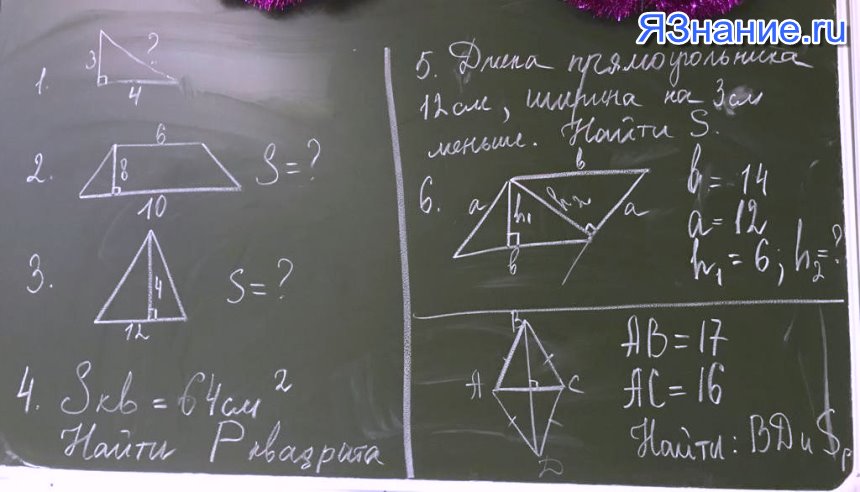 ЯЗнание.ru
1.
3
?
4
2.
6
8
10
S = ?
3.
4
12
S = ?
4. Sкв = 64 см²
Найти Pквадрата
5. Длина прямоугольника
12 см, ширина на 3 см
меньше. Найти S.
6.
b
a
h₁
h₂
a
b
b = 14
a = 12
h₁ = 6 ; h₂ = ?
B
A
C
D
AB = 17
AC = 16
Найти: BD и Sр